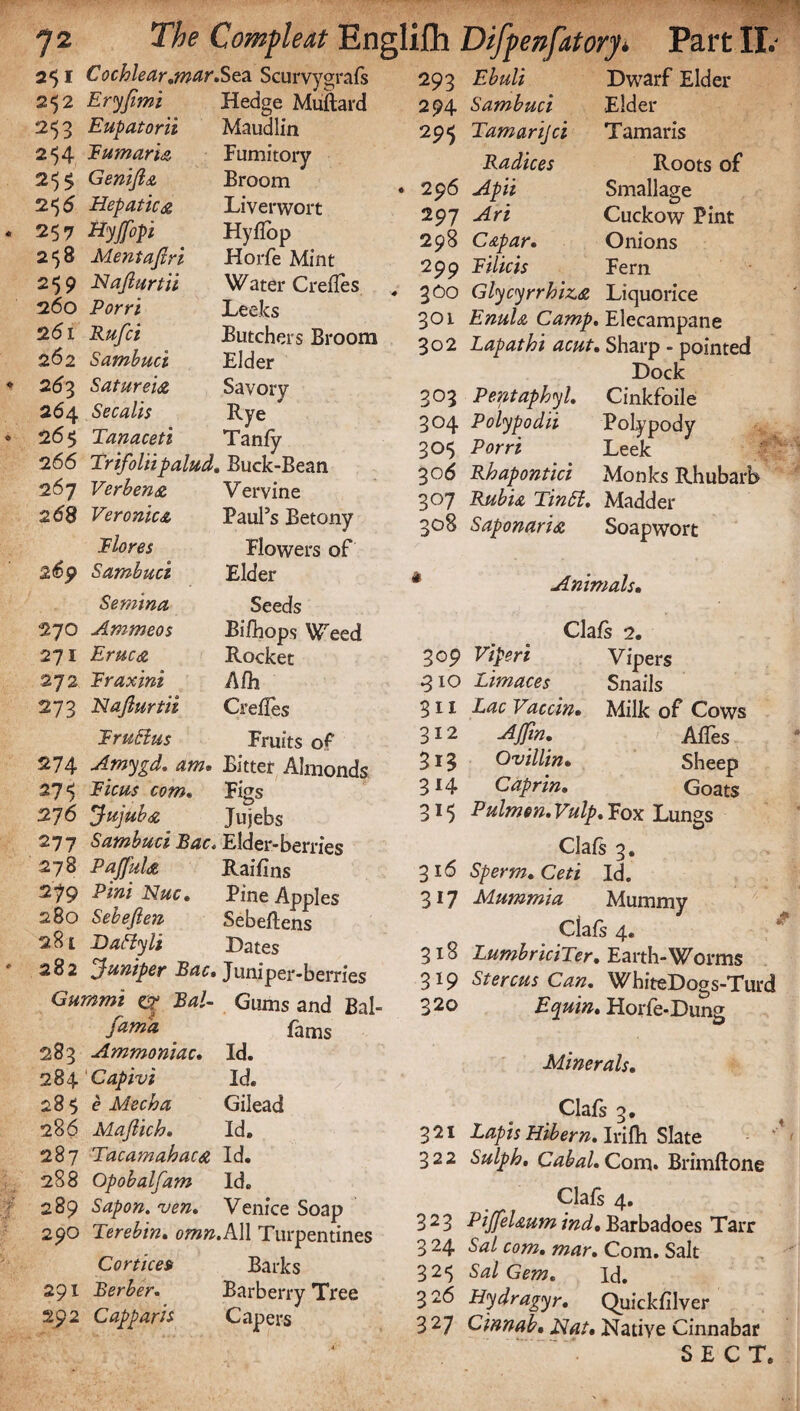 72 The Compleat Engliſh Diſpenſatory. Part II.
251 Cochlear.mar. Sea Scurvygraſs
252 Eryſimi Hedge Muſtard
253 Eupatorii Maudlin
254 Fumariæ Fumitory
255 Geniſtæ Broom
256 Hepaticæ Liverwort
257 Hyſſopi Hyſſop
258 Mentaſtri Horſe Mint
259 Naſturtii Water Creſſes
260 Porri Leeks
261 Ruſci Butchers Broom
262 Sambuci Elder
263 Satureiæ Savory
264 Secalis Rye
265 Tanaceti Tanſy
266 Trifolii palud. Buck-Bean
267 Verbenæ Vervine
268 Veronicæ Paul's Betony
Flores Flowers of
269 Sambuci Elder
Semina Seeds
270 Ammeos Biſhops Weed
271 Erucæ Rocket
272 Fraxini Aſh
273 Naſturtii Creſſes
Fructus Fruits of
274 Amygd. am. Bitter Almonds
275 Ficus com. Figs
276 Jujubæ Jujebs
277 Sambuci Bac. Elder-berries
278 Paſſulæ Raiſins
279 Pini Nuc. Pine Apples
280 Sebeſten Sebeſtens
281 Dactyli Dates
282 Juniper Bac. Juniper-berries
Gummi & Bal- Gums and Bal-
ſama ſams
283 Ammoniac. Id.
284 Capivi Id.
285 è Mecha Gilead
286 Maſtich. Id.
287 Tacamahacæ Id.
288 Opobalſam Id.
289 Sapon. ven. Venice Soap
290 Terebin. omn. All Turpentines
Cortices Barks
291 Berber. Barberry Tree
292 Capparis Capers
293 Ebuli Dwarf Elder
294 Sambuci Elder
295 Tamarijci Tamaris
Radices Roots of
296 Apii Smallage
297 Ari Cuckow Pint
298 Cæpar. Onions
299 Filicis Fern
300 Glycyrrhizæ Liquorice
301 Enulæ Camp. Elecampane
302 Lapathi acut. Sharp-pointed
Dock
303 Pentaphyl. Cinkfoile
304 Polypodii Polypody
305 Porri Leek
306 Rhapontici Monks Rhubarb
307 Rubiæ Tinct. Madder
308 Saponariæ Soapwort
Animals.
Claſs 2.
309 Viperi Vipers
310 Limaces Snails
311 Lac Vaccin. Milk of Cows
312 Aſſin. Aſſes
313 Ovillin. Sheep
314 Caprin. Goats
315 Pulmon. Vulp. Fox Lungs
Claſs 3.
316 Sperm. Ceti Id.
317 Mummia Mummy
Claſs 4.
318 LumbriciTer. Earth-Worms
319 Stercus Can. WhiteDogs-Turd
320 Equin. Horſe-Dung
Minerals.
Claſs 3.
321 Lapis Hibern. Iriſh Slate
322 Sulph. Cabal. Com. Brimſtone
Claſs 4.
323 Piſſelæum ind. Barbadoes Tarr
324 Sal com. mar. Com. Salt
325 Sal Gem. Id.
326 Hydragyr. Quickſilver
327 Cinnab. Nat. Native Cinnabar
SECT.